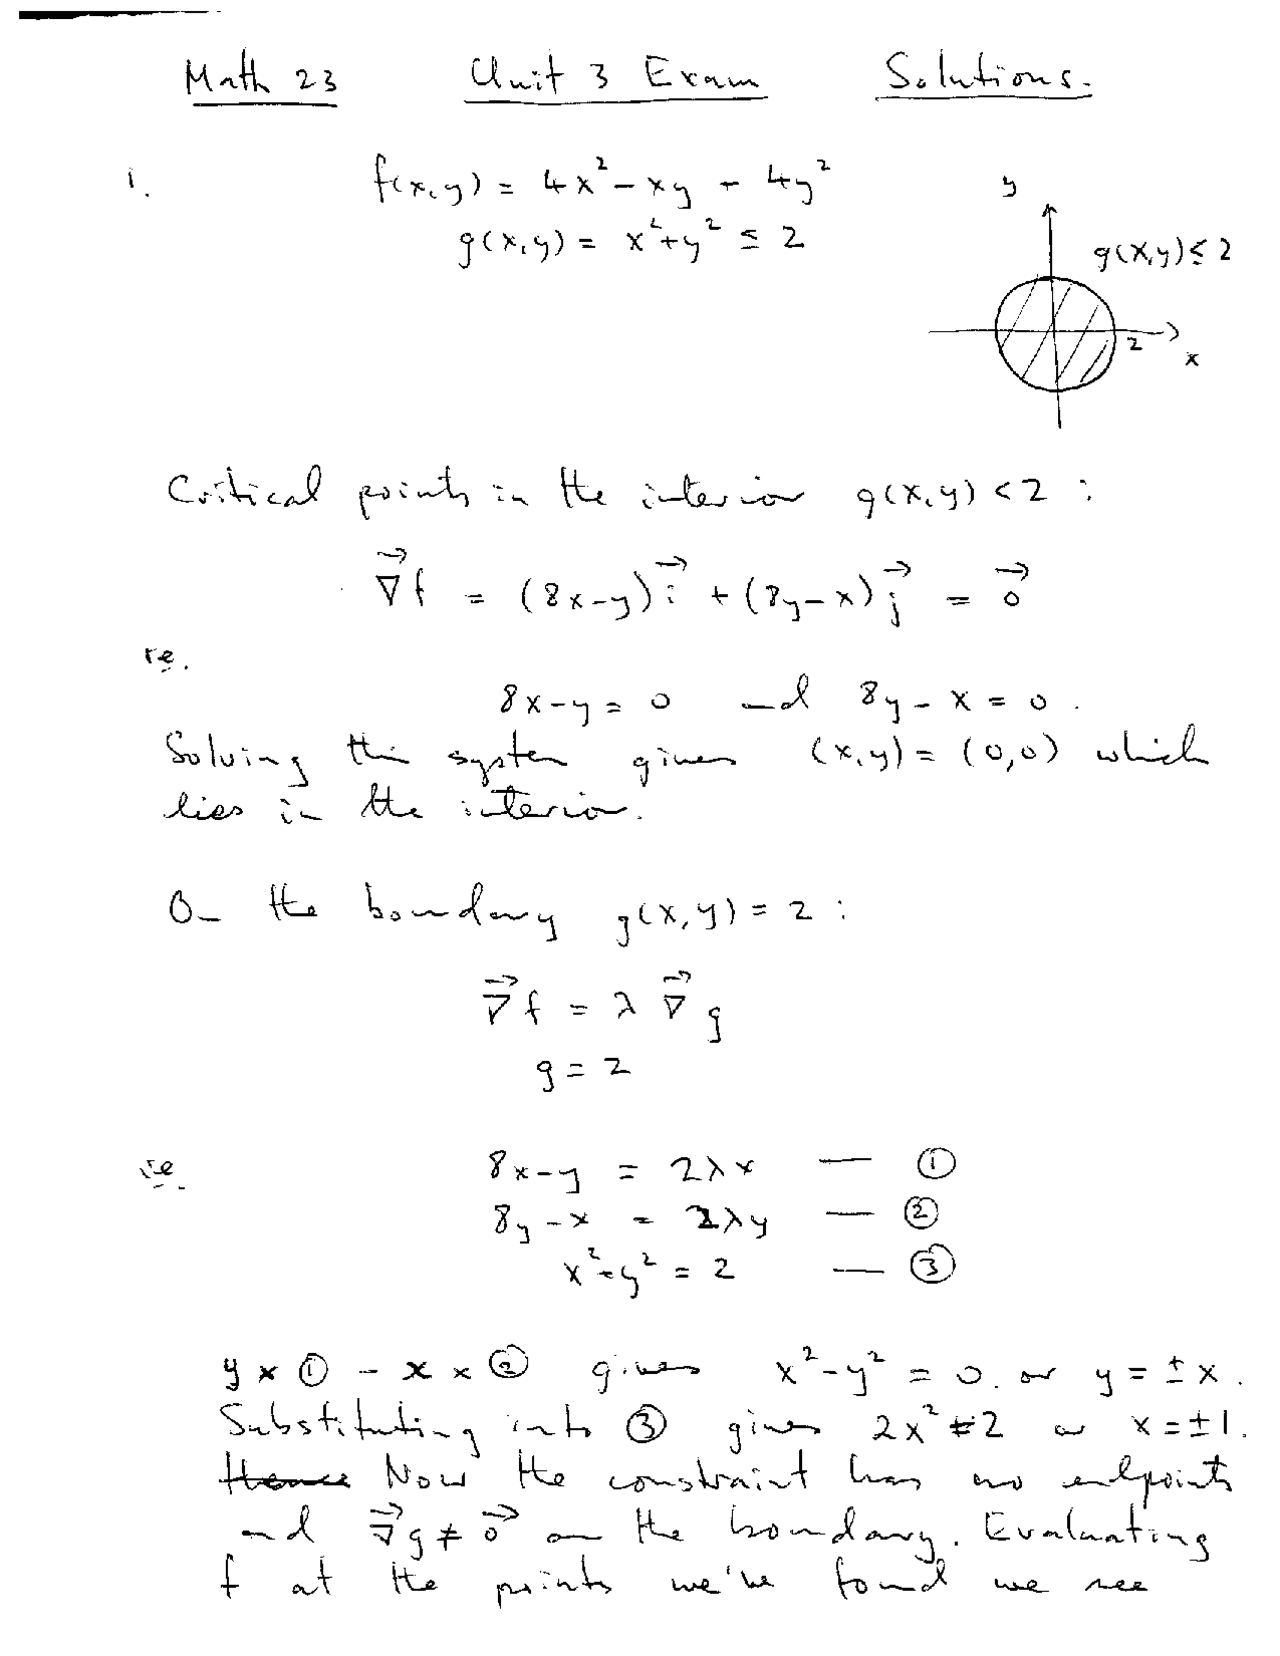 Math 23 Unit 3 Exam Solutions.
1. f(x,y) = 4x² - xy + 4y²
g(x,y) = x² + y² ≤ 2
y
g(x,y) ≤ 2
2
x
Critical points in the interior g(x,y) < 2 :
∇⃗f = (8x-y) i⃗ + (8y-x) j⃗ = 0⃗
ie.
8x-y = 0 and 8y-x = 0.
Solving this system gives (x,y) = (0,0) which
lies in the interior.
On the boundary g(x,y) = 2 :
∇⃗f = λ ∇⃗g
g = 2
ie. 8x-y = 2λx — ①
8y-x = 2λy — ②
x²+y² = 2 — ③
y × ① - x × ② gives x²-y² = 0. or y = ±x.
Substituting into ③ gives 2x² = 2 or x = ±1.
Hence Now the constraint has no endpoints
and ∇⃗g ≠ 0⃗ on the boundary. Evaluating
f at the points we've found we see